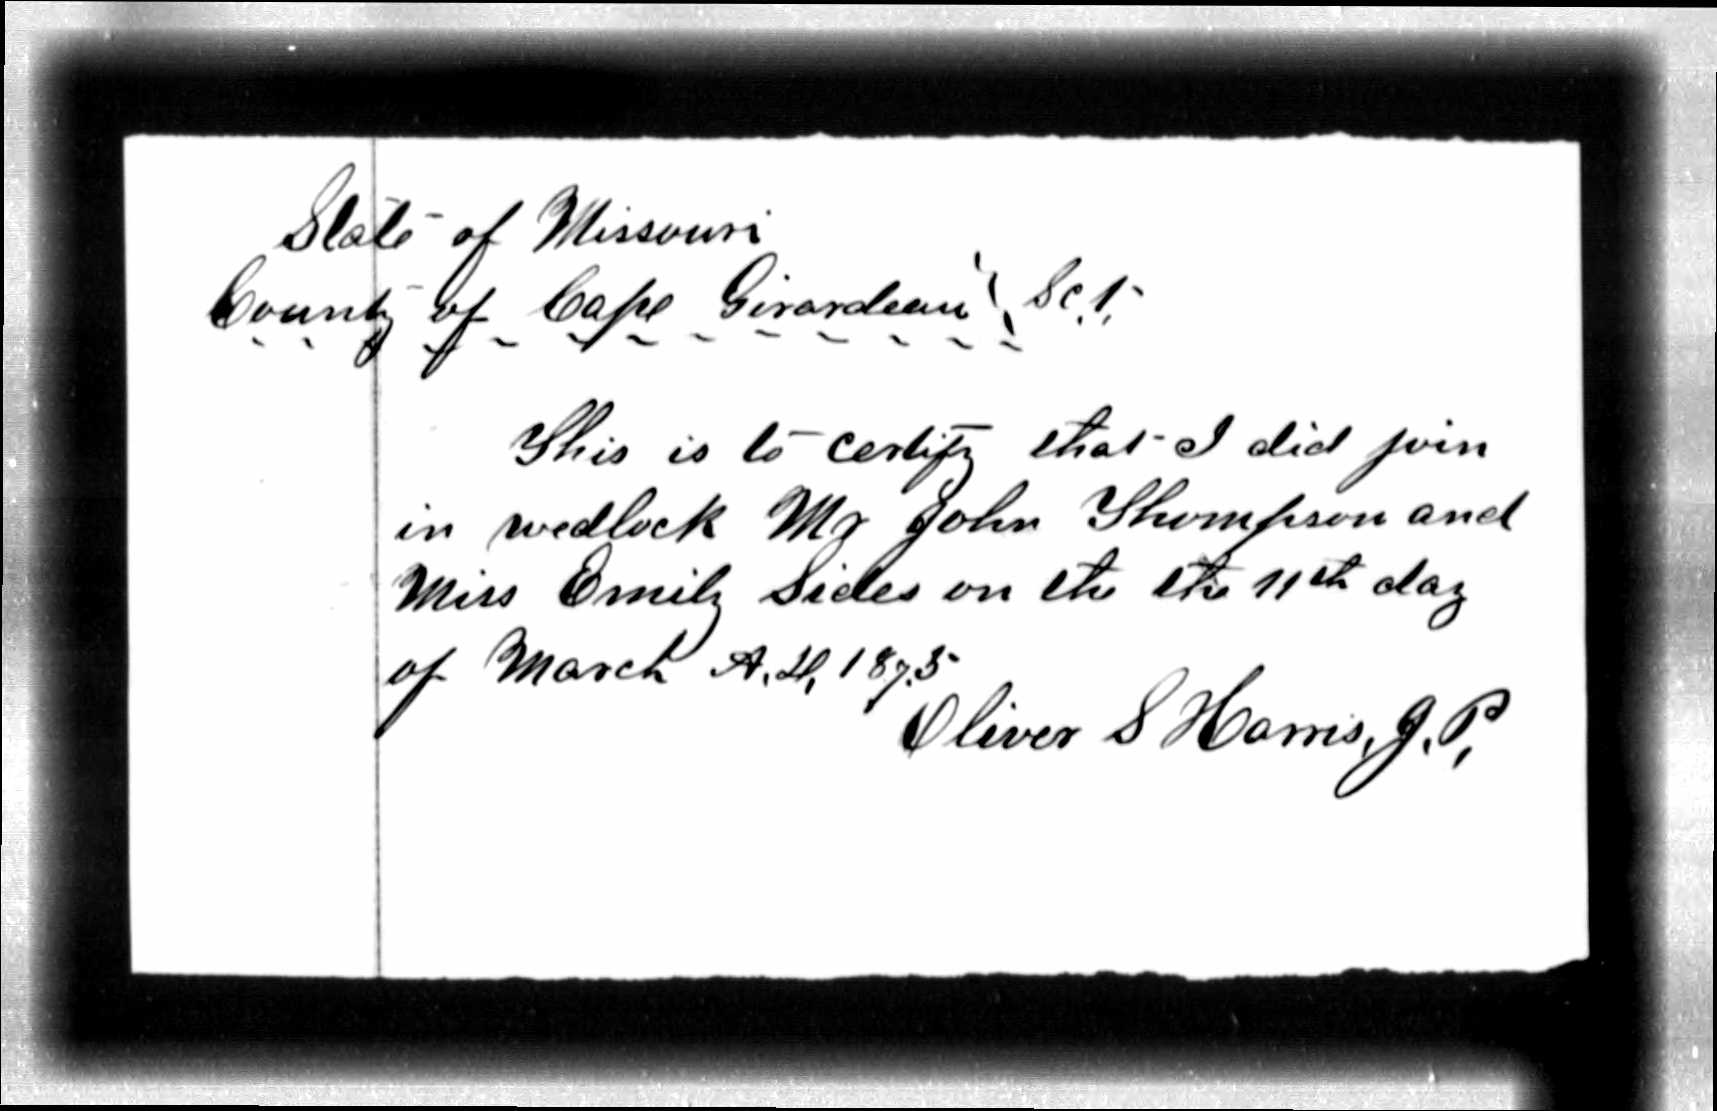 State of Missouri
County of Cape Girardeau } Sc.t.
This is to certify that I did join
in wedlock Mr John Thompson and
Miss Emily Sides on the the 11th day
of March A.D, 1875
Oliver S Harris, J.P,